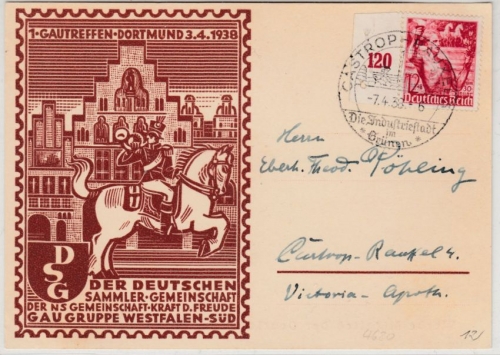 1·GAUTREFFEN·DORTMUND 3.4.1938
DSG
DER DEUTSCHEN
SAMMLER·GEMEINSCHAFT
DER NS GEMEINSCHAFT·KRAFT D. FREUDE
GAUGRUPPE WESTFALEN-SÜD
120
12
Deutsches Reich
CASTROP
-7.4.38
Die Industriestadt
im
Grünen
Herrn
Eberh. Theod. Röhling
Castrop-Rauxel 4.
Victoria-Apoth.
12